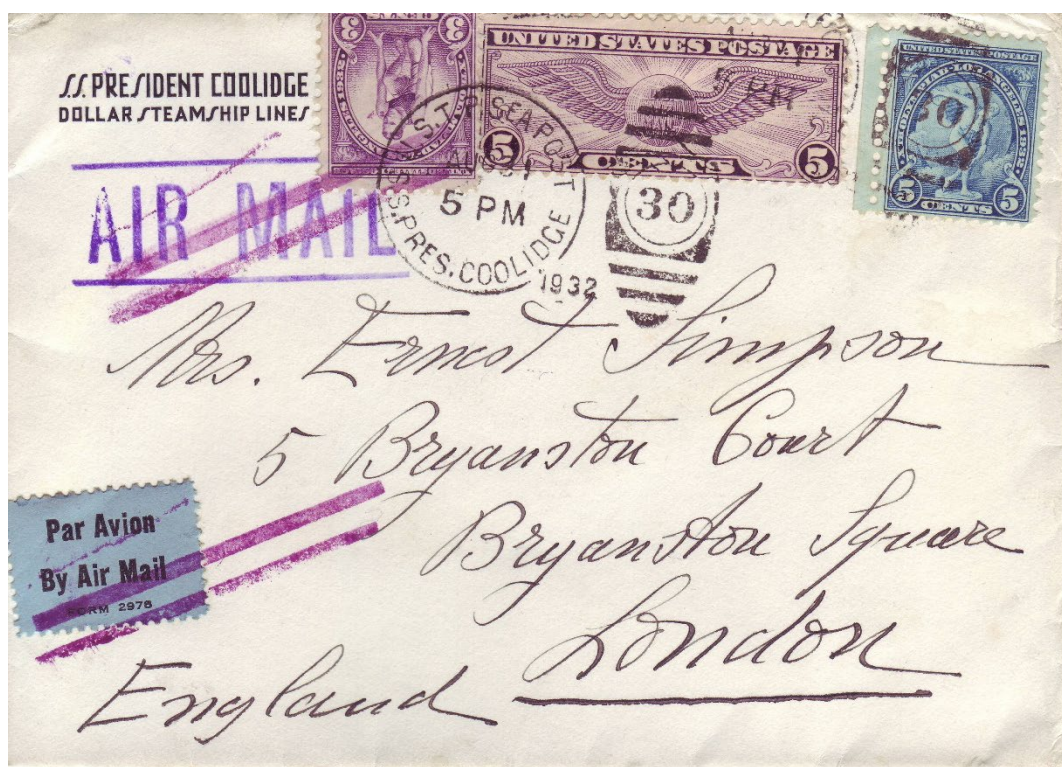 S.S. PRESIDENT COOLIDGE
DOLLAR STEAMSHIP LINES
AIR MAIL
3 3
UNITED STATES POSTAGE
5 CENTS 5
PM
UNITED STATES POSTAGE
XTH OLYMPIAD LOS ANGELES 1932
5 CENTS 5
30
SEA POST
5 PM
S.S. PRES. COOLIDGE
1932
30
Mrs. Ernest Simpson
5 Bryanston Court
Bryanston Square
London
England
Par Avion
By Air Mail
FORM 2978